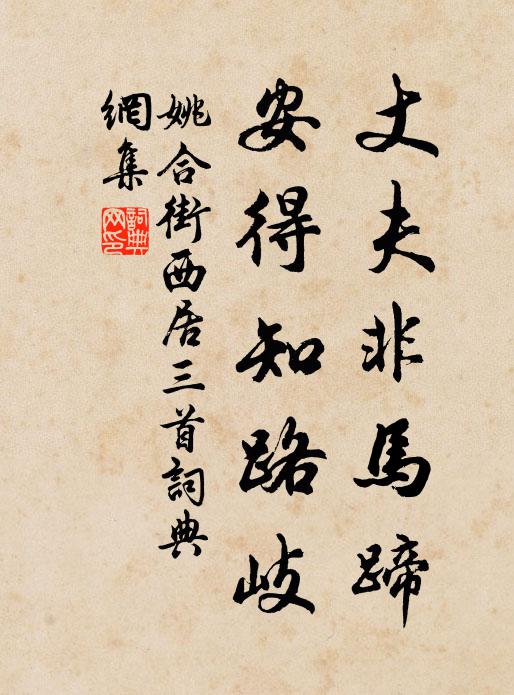 丈夫非馬蹄
安得知路岐
姚合街西居三首詞典
網集
詞典網印